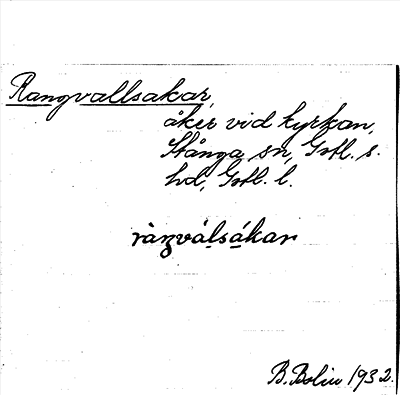 Rangvallsakar,
åker vid kyrkan,
Stånga sn, Gotl. s.
hd, Gotl. l.
B. Bolin 1932.